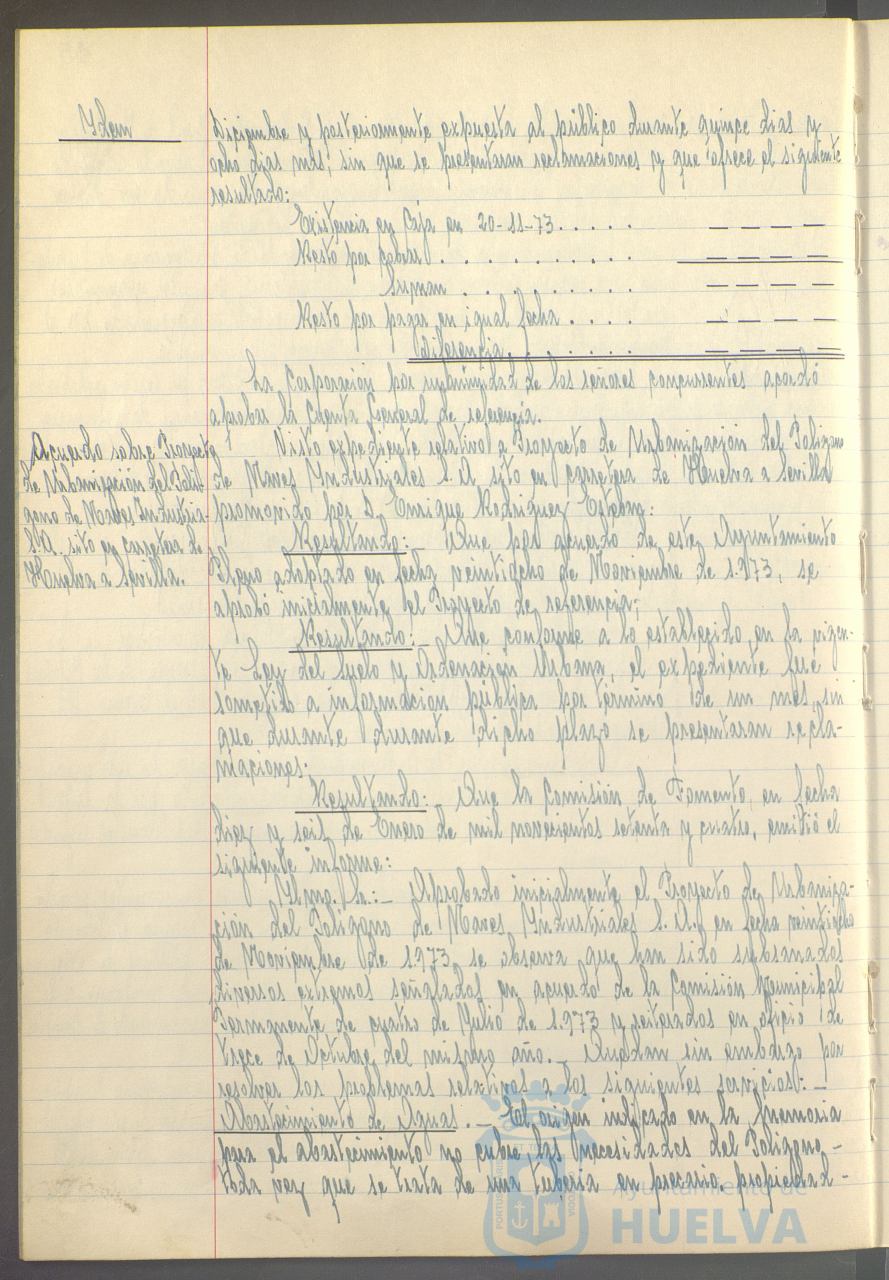 Idem
Diciembre y posteriormente expuesta al público durante quince dias y
ocho dias más, sin que se presentaran reclamaciones y que ofrece el siguiente
resultado:
Existencia en Caja en 20-11-73. . . . . — — — —
Resto por cobrar . . . . . . . . . . . — — — —
Suman . . . . . . . . — — — —
Resto por pagar en igual fecha . . . . — — — —
diferencia. . . . . . . — — — —
La Corporación por unanimidad de los señores concurrentes acordó
aprobar la Cuenta General de referencia.
Acuerdo sobre Proyecto
de Urbanización del Polí-
gono de Naves Industria-
S.A. sito en carretera de
Huelva a Sevilla.
Visto expediente relativo a Proyecto de Urbanización del Poligono
de Naves Industriales S.A. sito en carretera de Huelva a Sevilla
promovido por D. Enrique Rodriguez Esteban:
Resultando:- Que por acuerdo de este Ayuntamiento
Pleno adoptado en fecha veintiocho de Noviembre de 1.973, se
aprobó inicialmente el Proyecto de referencia;
Resultando:- Que conforme a lo establecido en la vigen-
te Ley del Suelo y Ordenación Urbana, el expediente fué
sometido a información pública por término de un mes, sin
que durante durante dicho plazo se presentaran recla-
maciones.
Resultando:- Que la Comisión de Fomento, en fecha
diez y seis de Enero de mil novecientos setenta y cuatro, emitió el
siguiente informe:
Iltmo. Sr.:- Aprobado inicialmente el Proyecto de Urbaniza-
ción del Poligono de Naves Industriales S.A. en fecha veintiocho
de Noviembre de 1.973 se observa que han sido subsanados
diversos extremos señalados en acuerdo de la Comisión Municipal
Permanente de cuatro de Julio de 1.973 y reiterados en oficio de
trece de Octubre del mismo año.- Quedan sin embargo por
resolver los problemas relativos a los siguientes servicios:-
Abastecimiento de Aguas.- El origen indicado en la Memoria
para el abastecimiento no cubre las necesidades del Poligono-
toda vez que se trata de una tuberia en precario, propiedad-
Ayuntamiento de
HUELVA